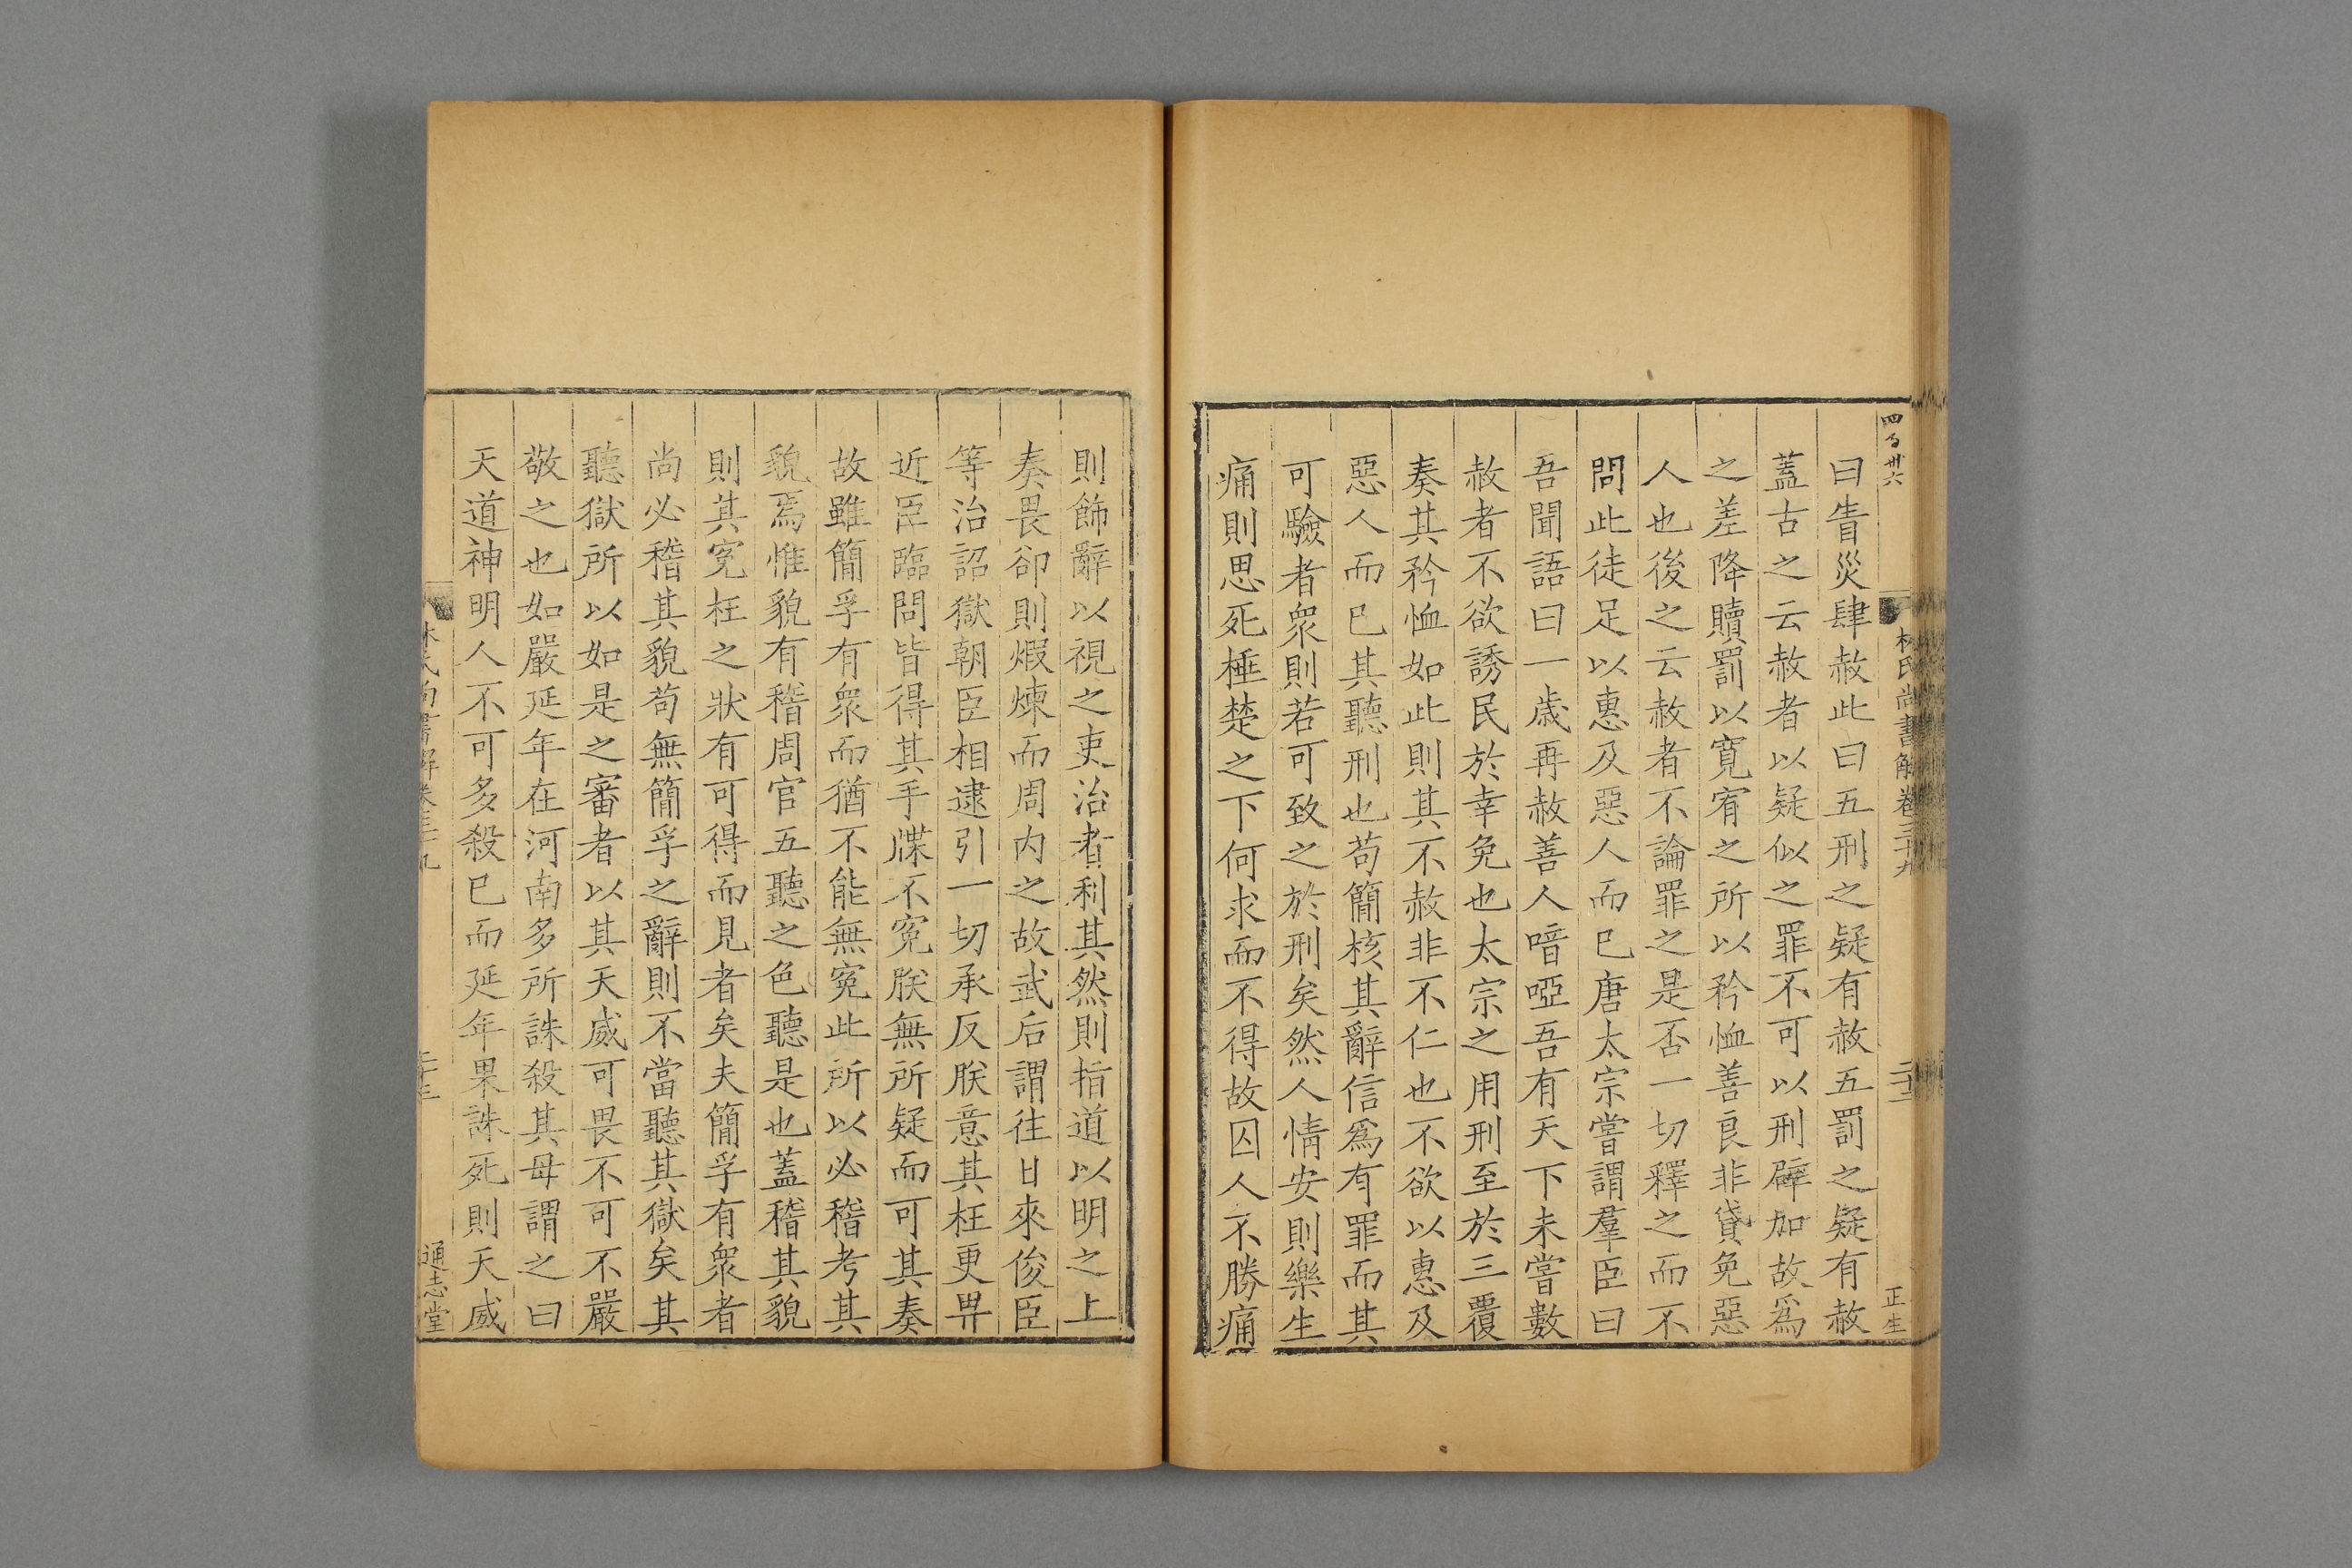 四百卅六
林氏尚書解卷三十九
二十二
正生
曰眚災肆赦此曰五刑之疑有赦五罰之疑有赦
蓋古之云赦者以疑似之罪不可以刑辟加故爲
之差降贖罰以寬宥之所以矜恤善良非貸免惡
人也後之云赦者不論罪之是否一切釋之而不
問此徒足以惠及惡人而已唐太宗嘗謂羣臣曰
吾聞語曰一歳再赦善人喑啞吾有天下未嘗數
赦者不欲誘民於幸免也太宗之用刑至於三覆
奏其矜恤如此則其不赦非不仁也不欲以惠及
惡人而已其聽刑也苟簡核其辭信爲有罪而其
可驗者衆則若可致之於刑矣然人情安則樂生
痛則思死棰楚之下何求而不得故囚人不勝痛
則飾辭以視之吏治者利其然則指道以明之上
奏畏卻則煆煉而周内之故武后謂往日來俊臣
等治詔獄朝臣相逮引一切承反朕意其枉更畀
近臣臨問皆得其手牒不冤朕無所疑而可其奏
故雖簡孚有衆而猶不能無冤此所以必稽考其
貌焉惟貌有稽周官五聽之色聽是也蓋稽其貌
則其冤枉之狀有可得而見者矣夫簡孚有衆者
尚必稽其貌苟無簡孚之辭則不當聽其獄矣其
聽獄所以如是之審者以其天威可畏不可不嚴
敬之也如嚴延年在河南多所誅殺其母謂之曰
天道神明人不可多殺已而延年果誅死則天威
林氏尚書解卷三十九
二十二
通志堂